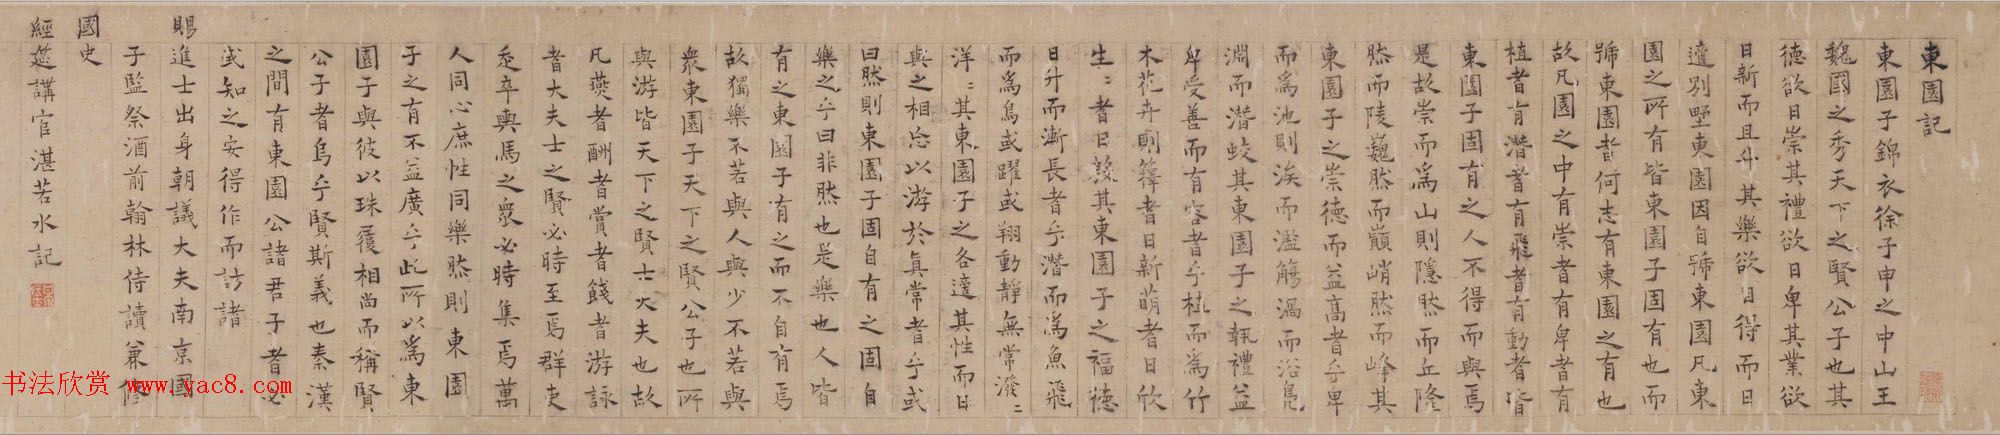 東園記
東園子錦衣徐子申之中山王
魏國之秀天下之賢公子也其
德欲日崇其禮欲日卑其業欲
日新而且斗其樂欲日得而日
邃別墅東園因自號東園凡東
園之所有皆東園子固有也而
號東園者何志有東園之有也
故凡園之中有崇者有卑者有
植者有潛者有飛者有動者皆
東園子固有之人不得而與焉
是故崇而為山則隱然而丘隆
然而陵巍然而巔峭然而峰其
東園子之崇德而益高者乎卑
而為池則涘而濫觴渦而浴鳧
淵而潛蛟其東園子之執禮益
卑受善而有容者乎植而為竹
木花卉則籜者日新萌者日欣
生〻者日發其東園子之福德
日升而漸長者乎潛而為魚飛
而為鳥或躍或翔動靜無常潑〻
洋〻其東園子之各適其性而日
與之相忘以游於真常者乎或
曰然則東園子固自有之固自
樂之乎曰非然也是樂也人皆
有之東園子有之而不自有焉
故獨樂不若與人與少不若與
眾東園子天下之賢公子也所
與游皆天下之賢士大夫也故
凡燕者酬者賞者餞者游詠
者大夫士之賢必時至焉群吏
走卒輿馬之眾必時集焉萬
人同心庶性同樂然則東園
子之有不益廣乎此所以為東
園子與彼以珠履相尚而稱賢
公子者烏乎賢斯義也秦漢
之間有東園公諸君子者必
或知之安得作而訪諸
賜進士出身朝議大夫南京國
子監祭酒前翰林侍讀兼修
國史
經筵講官湛若水記
书法欣赏 www.yac8.com